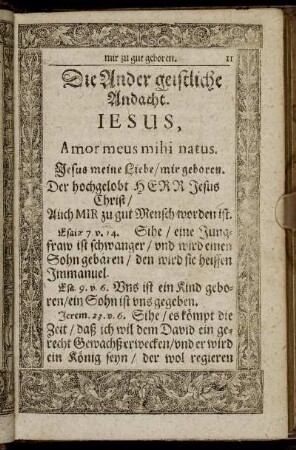 mir zu gut geboren. 11
Die Ander geistliche
Andacht.
IESUS,
Amor meus mihi natus.
Jesus meine Liebe/mir geboren.
Der hochgelobt HERR Jesus
Christ/
Auch MIR zu gut Mensch worden ist.
Esaiæ 7. v. 14. Sihe / eine Jung-
fraw ist schwanger / vnd wird einen
Sohn gebären / den wird sie heissen
Immanuel.
Esa. 9. v. 6. Vns ist ein Kind gebo-
ren/ein Sohn ist vns gegeben.
Jerem. 23. v. 6. Sihe / es kömpt die
Zeit / daß ich wil dem David ein ge-
recht Gewächß erwecken/vnd er wird
ein König seyn / der wol regieren